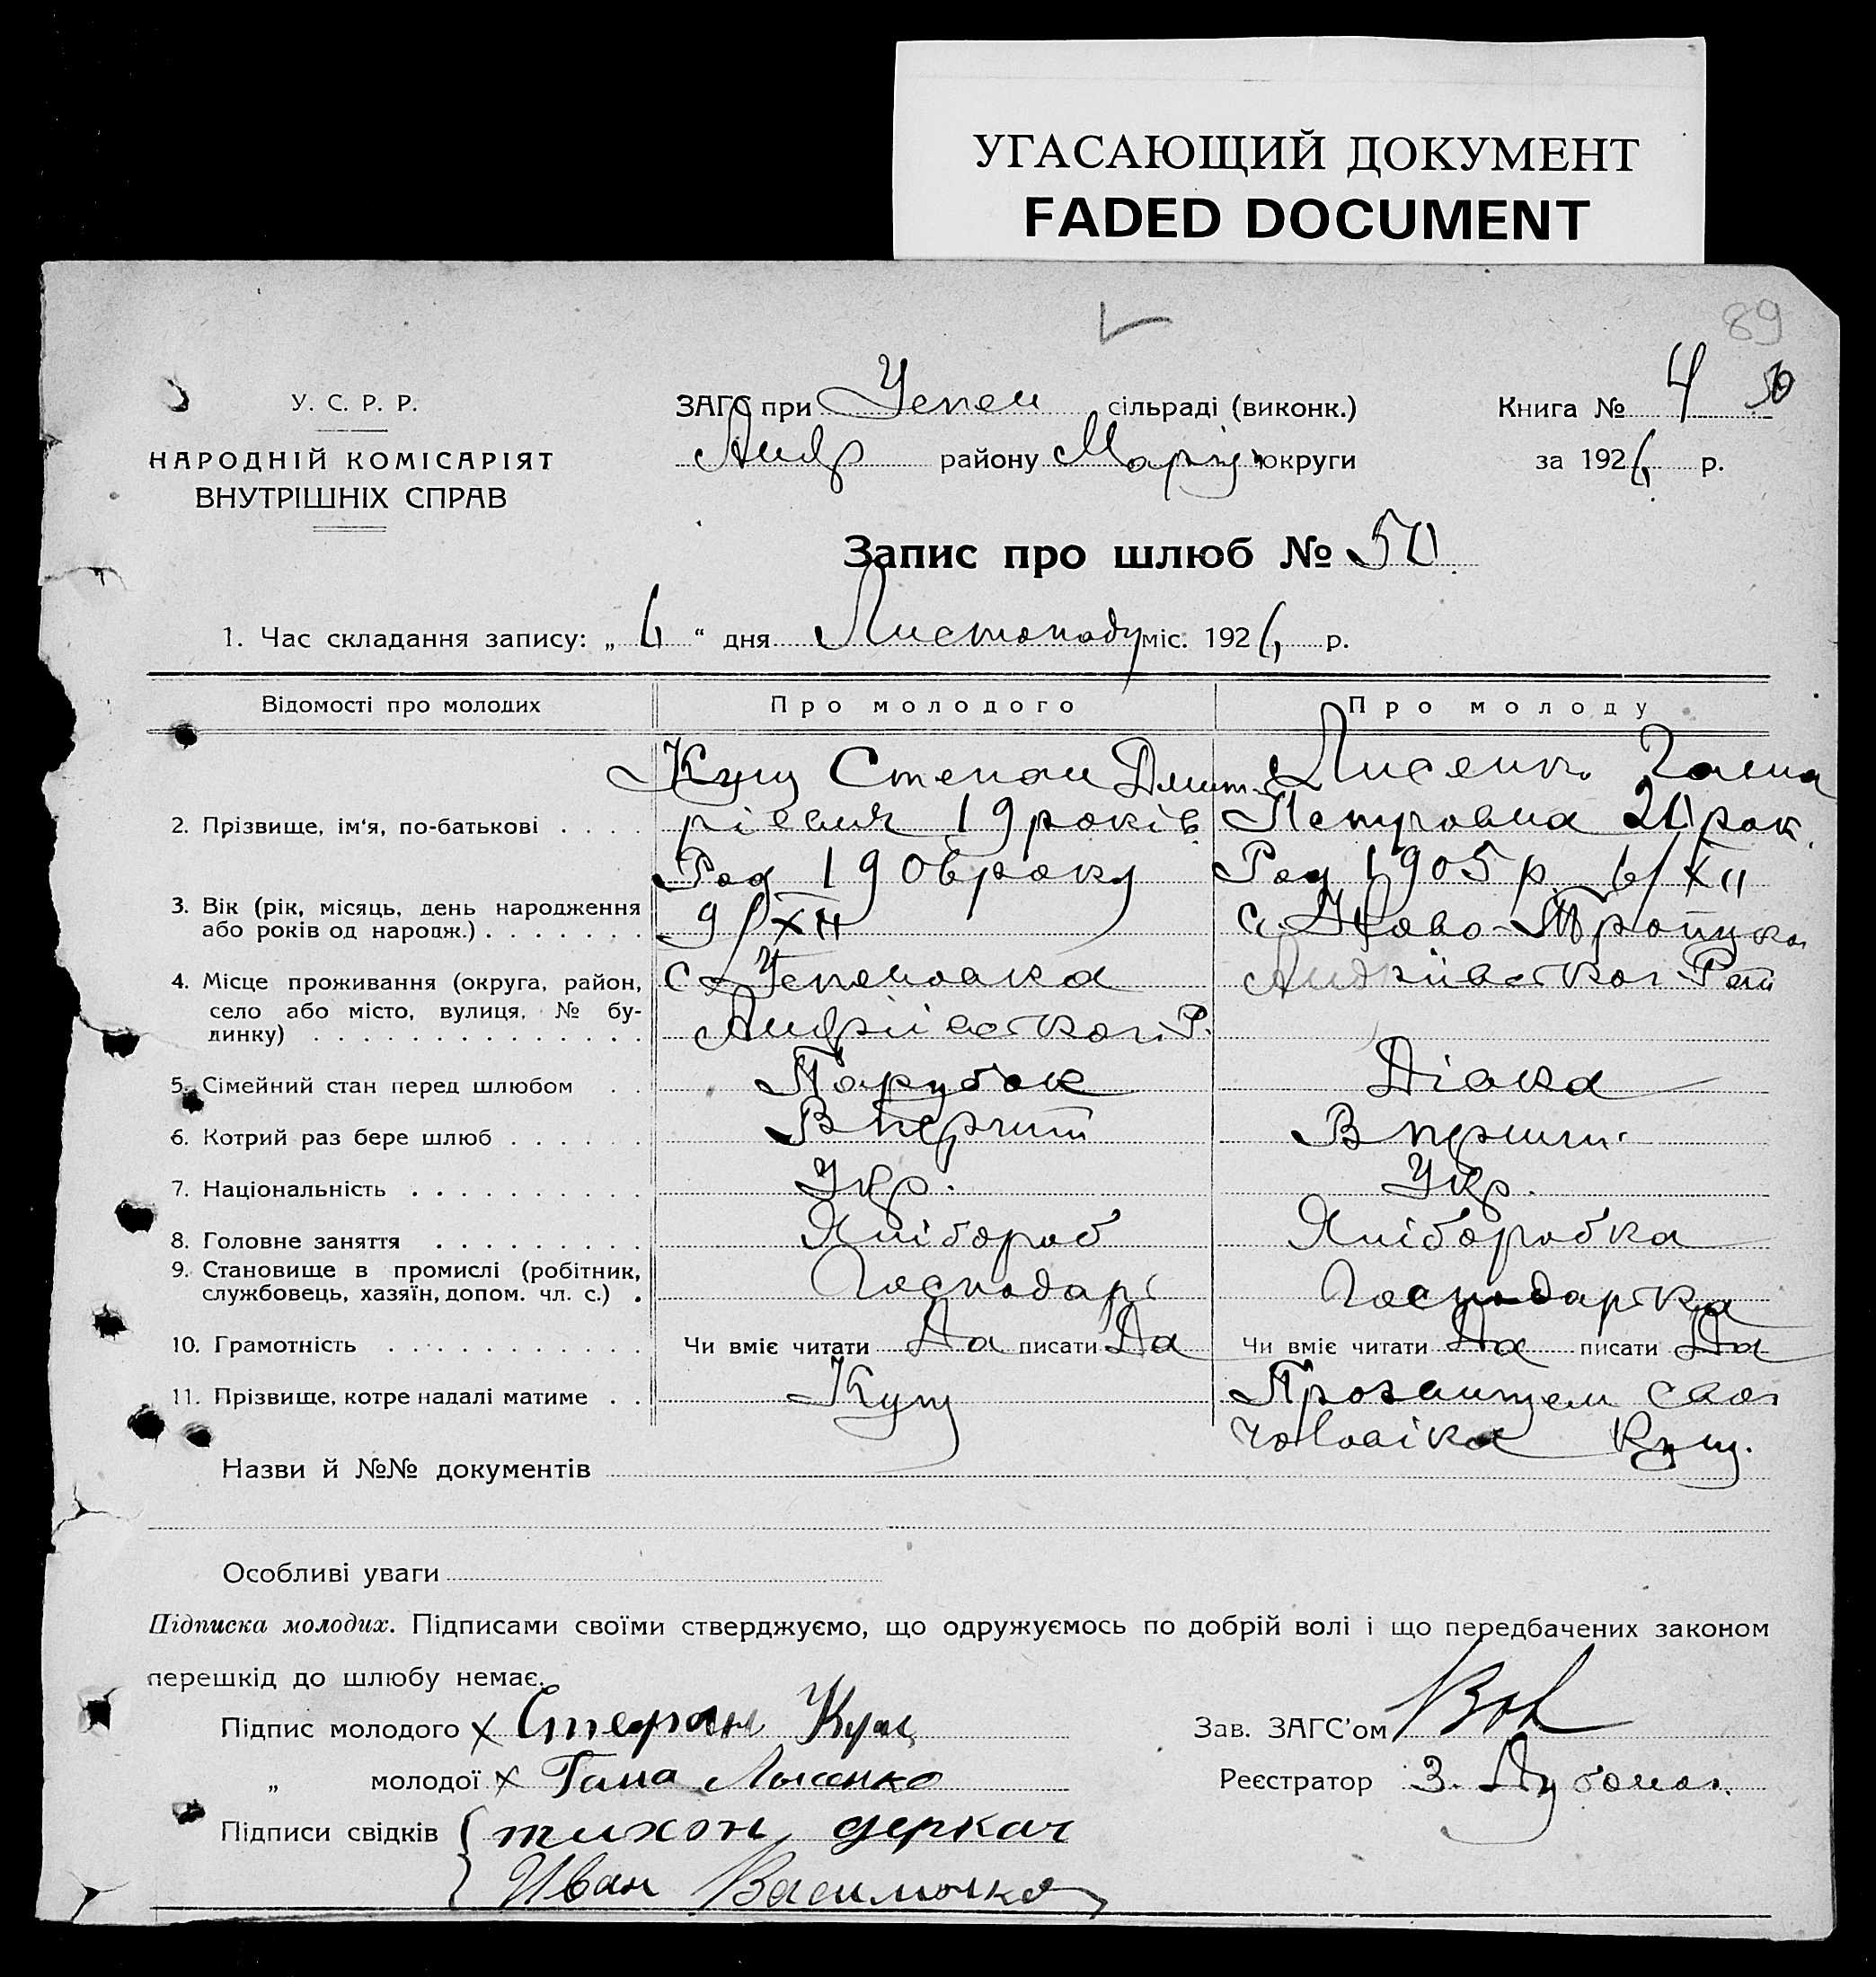 УГАСАЮЩИЙ ДОКУМЕНТ
FADED DOCUMENT
89
У. С. Р. Р.
НАРОДНІЙ КОМІСАРІЯТ
ВНУТРІШНІХ СПРАВ
ЗАГС при Успен сільраді (виконк.)
Андр району Маріу округи
Книга № 4 50
за 1926 р.
Запис про шлюб № 50
1. Час складання запису: „ 6 “ дня Листопаду міс. 1926 р.
Відомості про молодих
Про молодого
Про молоду
2. Прізвище, ім‘я, по-батькові . . . .
Кущ Степан Дмит-
рієвич 19 років
Лисенко Ганна
Петровна 20 рок.
3. Вік (рік, місяць, день народження
або років од народж.) . . . . . . .
Род 1906 року
9/XII
Род 1905 р. 6/XII
4. Місце проживання (округа, район,
село або місто, вулиця, № бу-
динку) . . . . . . . . . . . . . .
с Успеновка
Андріівськог. Р.
с. Ново-Троицка
Андріівськог Рай
5. Сімейний стан перед шлюбом . .
Парубок
Дівка
6. Котрий раз бере шлюб . . . . . .
Вперший
Вперший
7. Національність . . . . . . . . . .
Укр.
Укр.
8. Головне заняття . . . . . . . . .
Хлібороб
Хліборобка
9. Становище в промислі (робітник,
службовець, хазяїн, допом. чл. с.) .
Господарь
Господарька
10. Грамотність . . . . . . . . . . . .
Чи вміє читати Да писати Да
Чи вміє читати Да писати Да
11. Прізвище, котре надалі матиме . .
Кущ
чоловіка Кущ.
Назви й №№ документів
Особливі уваги
Підписка молодих. Підписами своїми стверджуємо, що одружуємось по добрій волі і що передбачених законом
перешкід до шлюбу немає.
Підпис молодого х Степан Кущ
Зав. ЗАГС’ом
„ молодої х Гана Лысенко
Реєстратор З.
Підписи свідків { тихон деркач
Иван Василючко